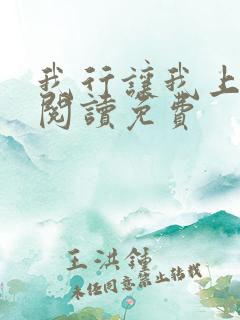 我行讓我上
閱讀免費
王洪鍾
未经同意禁止转载